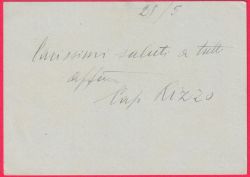 28/5
Carissimi saluti a tutti
aff.mo
Cap Rizzo